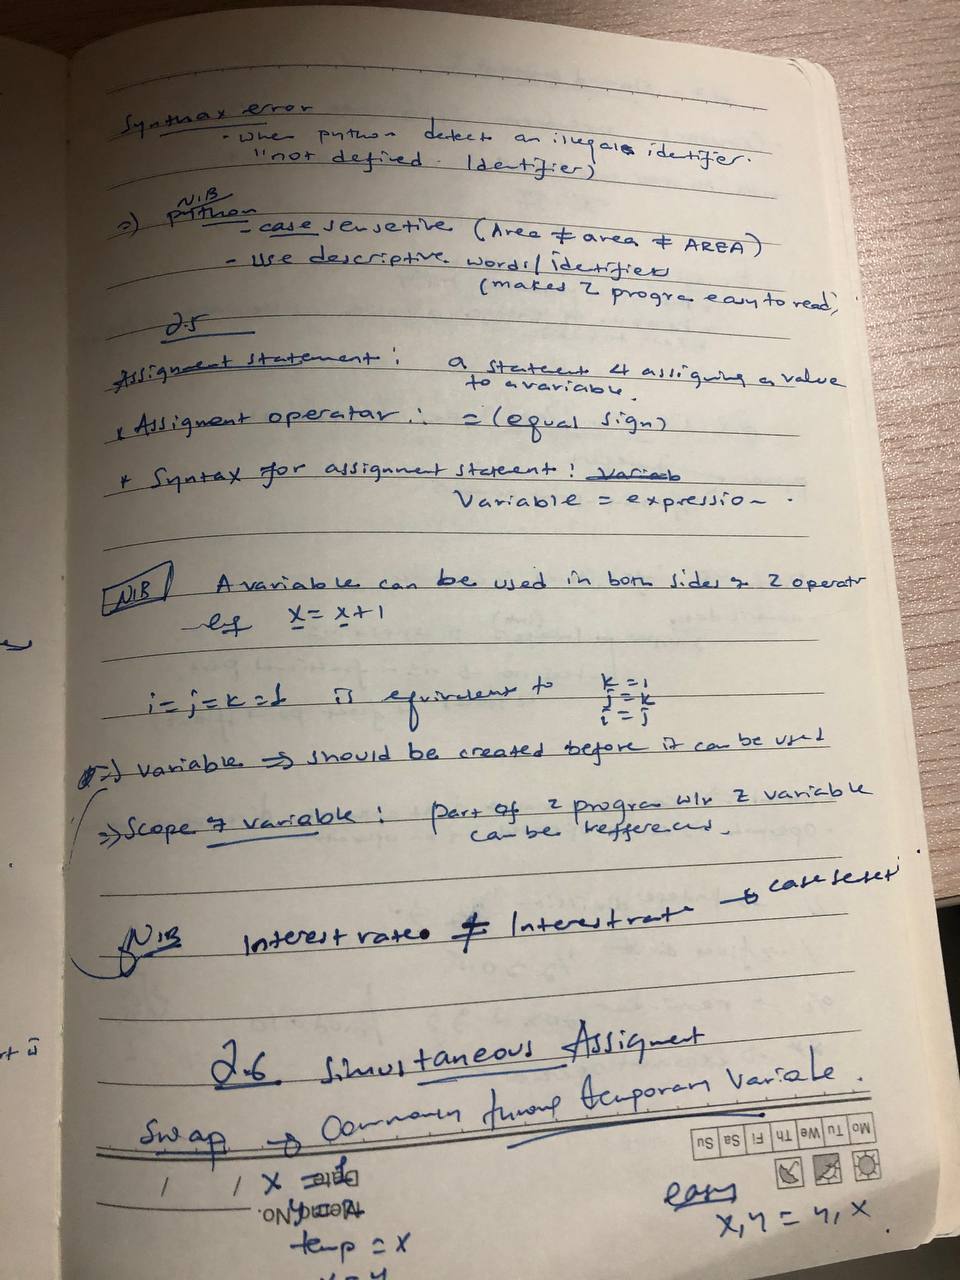 Synthax error
- when python detects an illegal identifier.
"not defined. Identifier)
N.B
=) python
- case sensetive (Area ≠ area ≠ AREA)
- Use descriptive words/identifiers
(makes z progra easy to read)
2.5
Assignment statement: a statement 4 assigning a value
to a variable.
* Assigment operator: = (equal sign)
* Syntax for assignment statement: Variab
Variable = expression.
N.B A variable can be used in both sides of z operatr
eg x = x+1
i = j = k = 1 is equivalent to k = 1
j = k
i = j
=) variable => should be created before it can be used
=> Scope of variable: part of z program w/r z variable
can be refferenced.
N.B Interestrate ≠ Interestrate → case
2.6 Simustaneous Assigment
Swap → Commonly temporary variable.
Mo Tu We Th Fi Sa Su
Date / /
Memo No.
x = 1
temp = x
x = y
easy
x, y = y, x